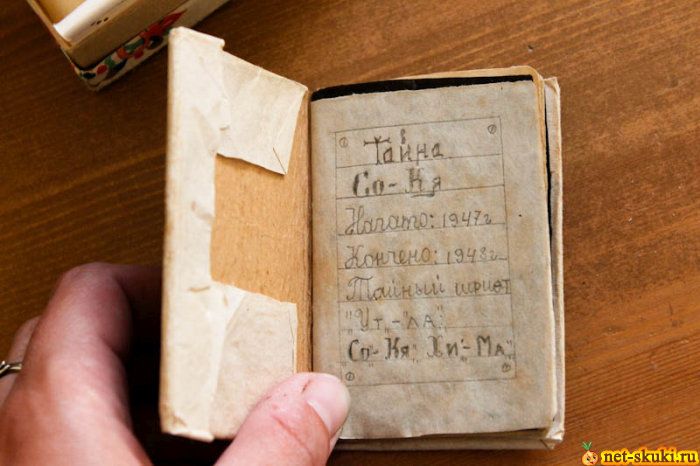 Тайна
Со-Кя
Начато: 1947г
Кончено: 1948г.
Тайный шрифт
"Ит„-"ла"
Со-"Кя„ Хи"-Ма„
net-skuki.ru